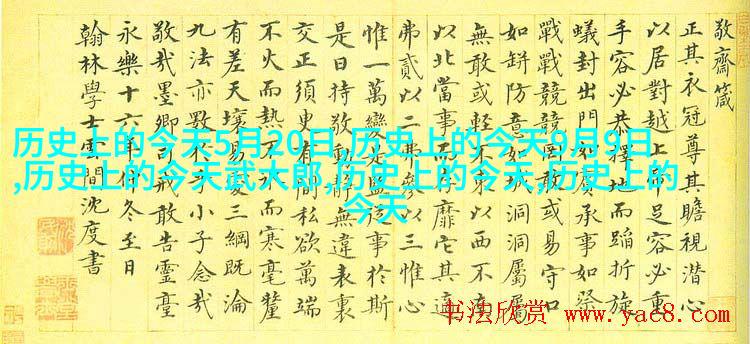 敬齋箴
正其衣冠尊其瞻視潛心
以居對越上足容必重
手容必恭擇地而蹈折旋
蟻封出門如承事如祭
戰戰兢兢敢或易守口
如缾防意如洞洞屬屬
無敢或輕不以西不南
以北當事而靡它其適
弗貳以二弗參以三惟心
惟一萬變是從事於斯
是曰持敬動無違表裏
交正須臾有間私欲萬端
不火而熱不而寒毫釐
有差天壤易三綱既淪
九法亦斁於小子念哉
敬哉墨卿司戒敢告靈臺
永樂十六年仲冬至日
翰林學士雲間沈度書
历史上的今天5月20日,历史上的今天9月9日
,历史上的今天武大郎,历史上的今天,历史上的
今天
书法欣赏
www.yac8.com